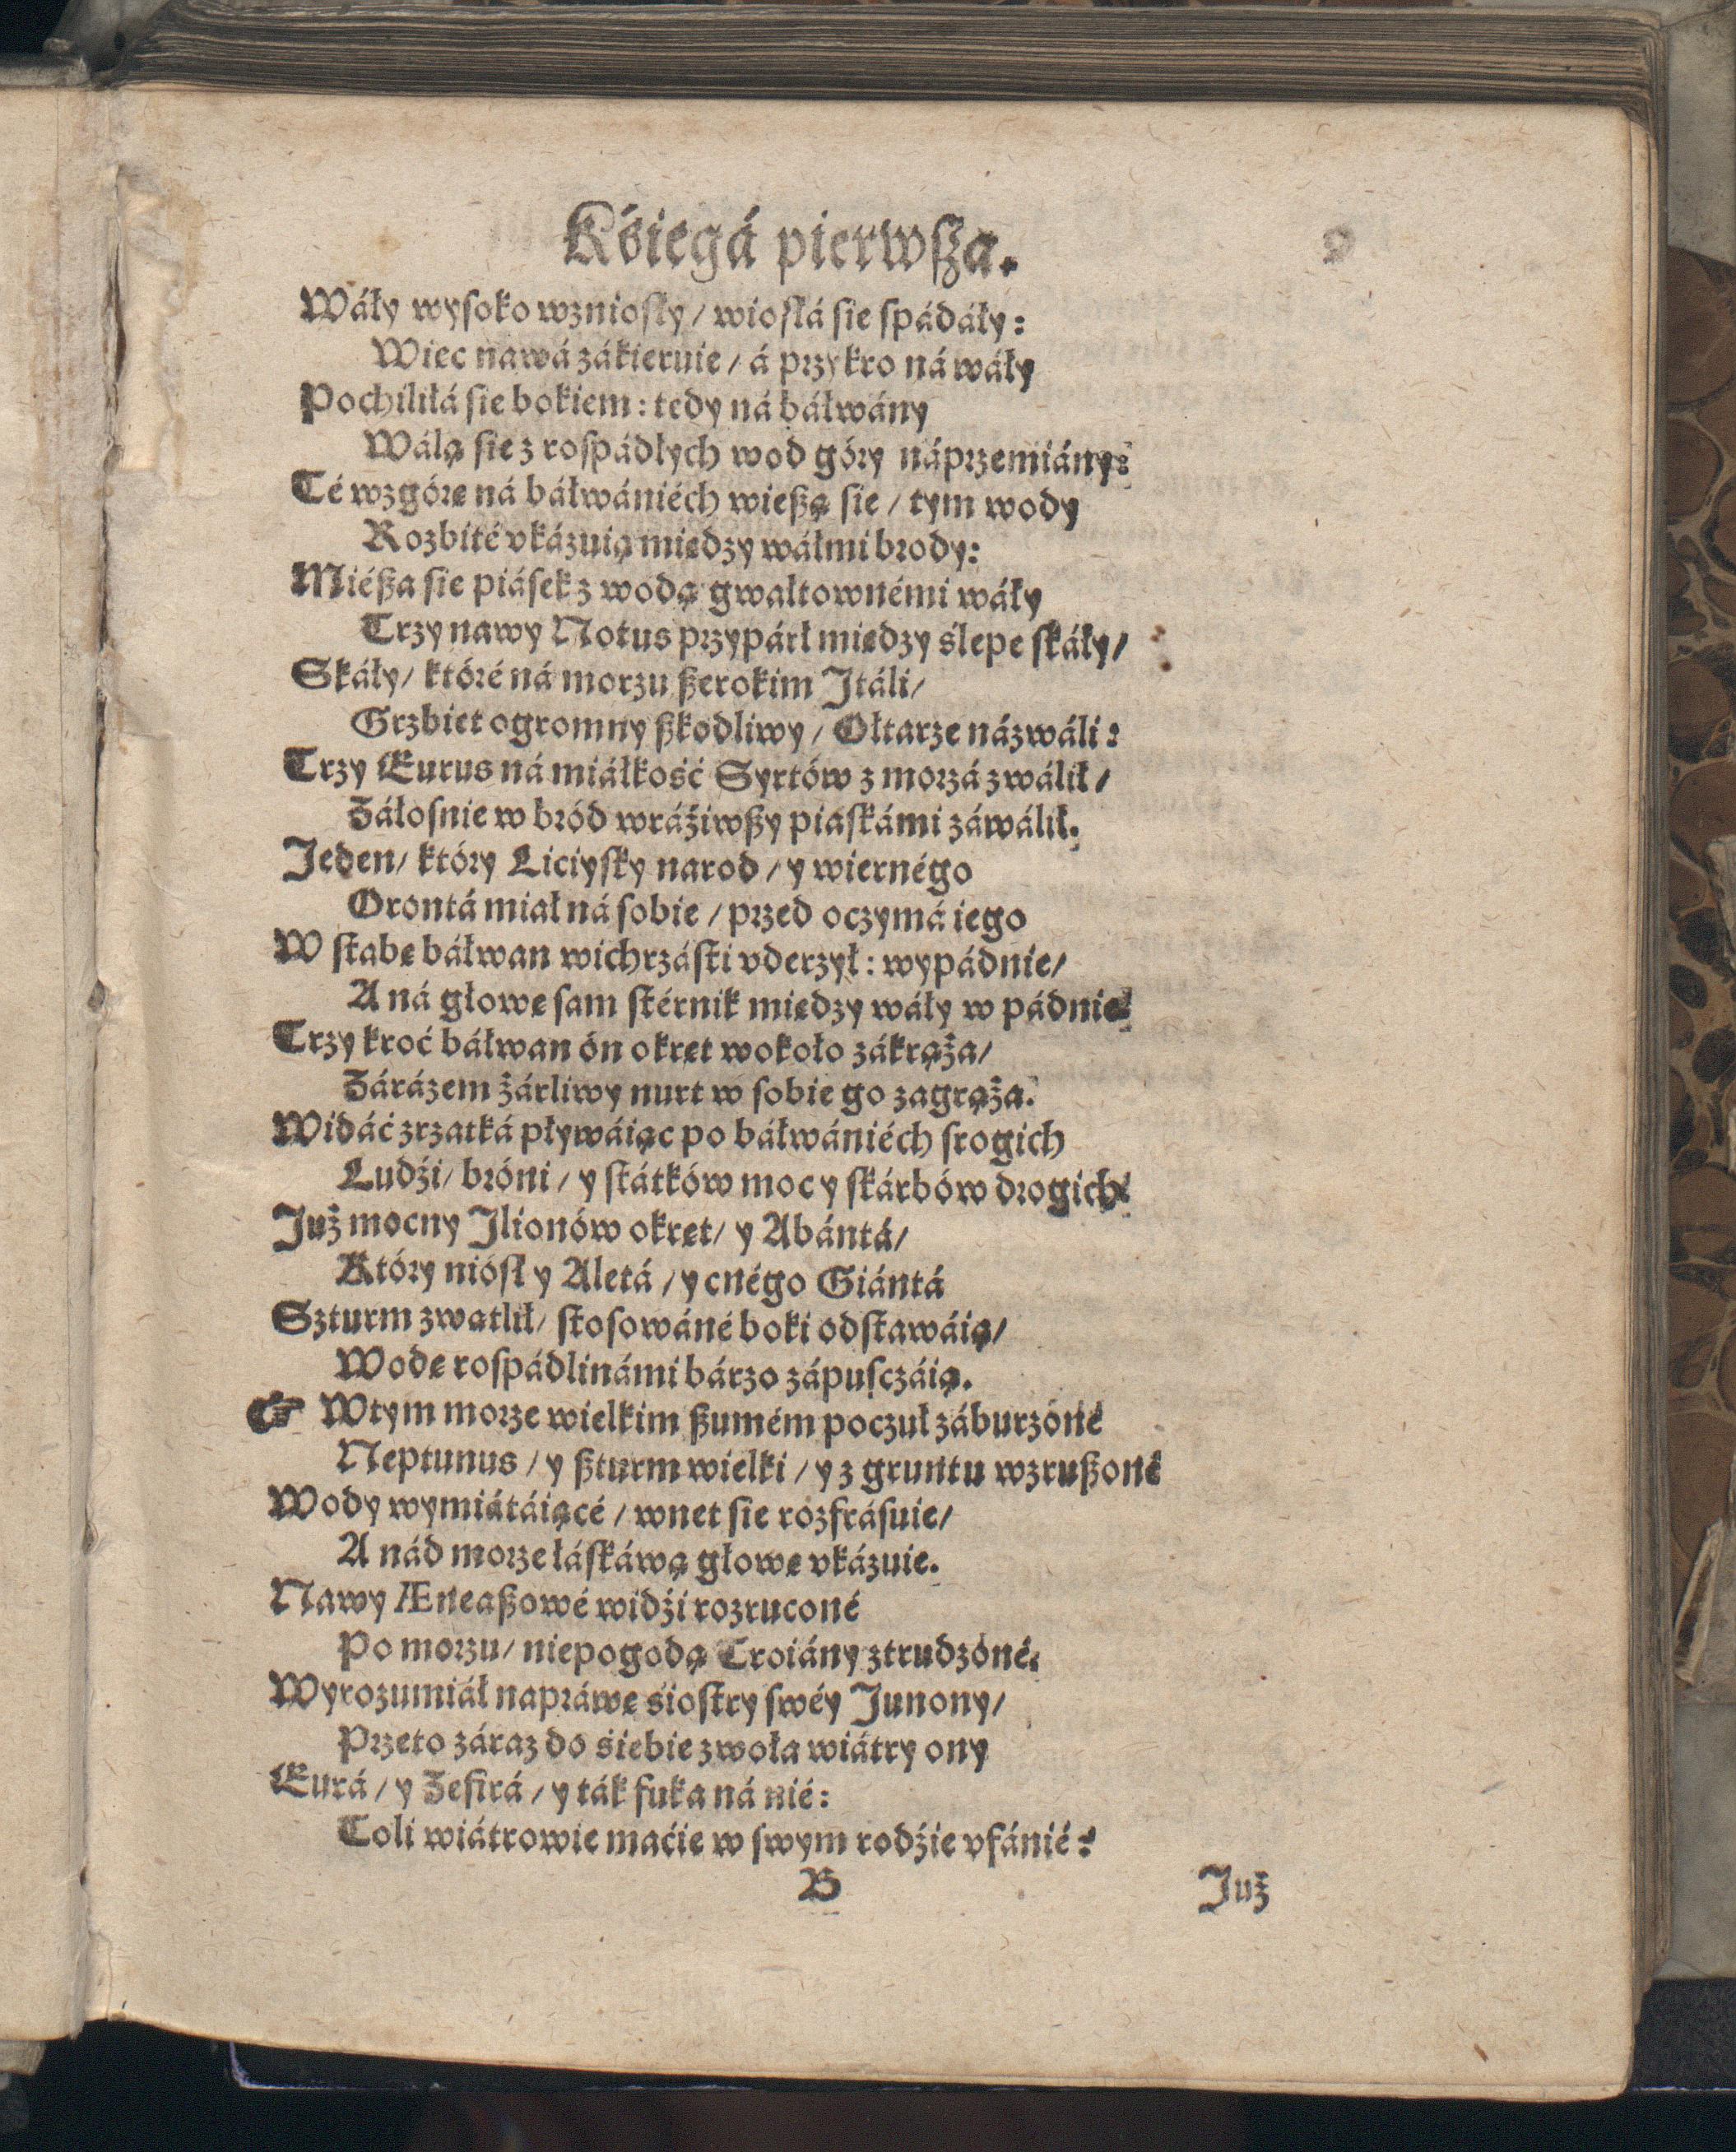 Kśięgá pierwſza. 9
Wáły wyſoko wznioſły / wioſlá ſie ſpádáły:
Więc nawá zákieruie / á przykro ná wáły
Pochiliłá ſie bokiem: tedy ná báłwány
Wálą ſie z roſpádłych wod góry náprzemiány:
Té wzgórę ná báłwániéch wießą ſie / tym wody
Rozbité vkázuią między wáłmi brody:
Miéßa ſie piáſek z wodą gwałtownémi wáły
Trzy nawy Notus przypárł między ślepe ſkáły /
Skáły / któré ná morzu ßerokim Jtáli /
Grzbiet ogromny ßkodliwy / Ołtarze názwáli:
Trzy Eurus ná miáłkość Syrtów z morzá zwálił /
Záłoſnie w bród wráźiwßy piaſkámi záwálił.
Jeden / który Liciyſky narod / y wiernégo
Orontá miał ná ſobie / przed oczymá iego
W ſtabę báłwan wichrzáſti vderzył: wypádnie /
A ná głowę ſam ſtérnik między wáły w pádnie:
Trzy kroć báłwan ón okręt wokoło zákrąża /
Zárázem żárliwy nurt w ſobie go zagrąża.
Widáć zrzatká pływáiąc po báłwániéch ſrogich
Ludźi / bróni / y ſtátków moc y ſkárbów drogich:
Już mocny Jlionów okręt / y Abántá /
Który nióſł y Aletá / y cnégo Giántá
Szturm zwątlił / ſtoſowáné boki odſtawáią /
Wodę roſpádlinámi bárzo zápuſczáią.
☞ Wtym morze wielkim ßumém poczuł záburzóné
Neptunus / y ßturm wielki / y z gruntu wzrußoné
Wody wymiátáiącé / wnet ſie rozfráſuie /
A nád morze łáſkáwą głowę vkázuie.
Nawy Æneaßowé widźi rozruconé
Po morzu / niepogodą Troiány ztrudzóné.
Wyrozumiáł napráwę śioſtry ſwéy Junony /
Przeto záraz do śiebie zwoła wiátry ony
Eurá / y Zefirá / y ták fuka ná nié:
Toli wiátrowie maćie w ſwym rodźie vfánié?
B Już